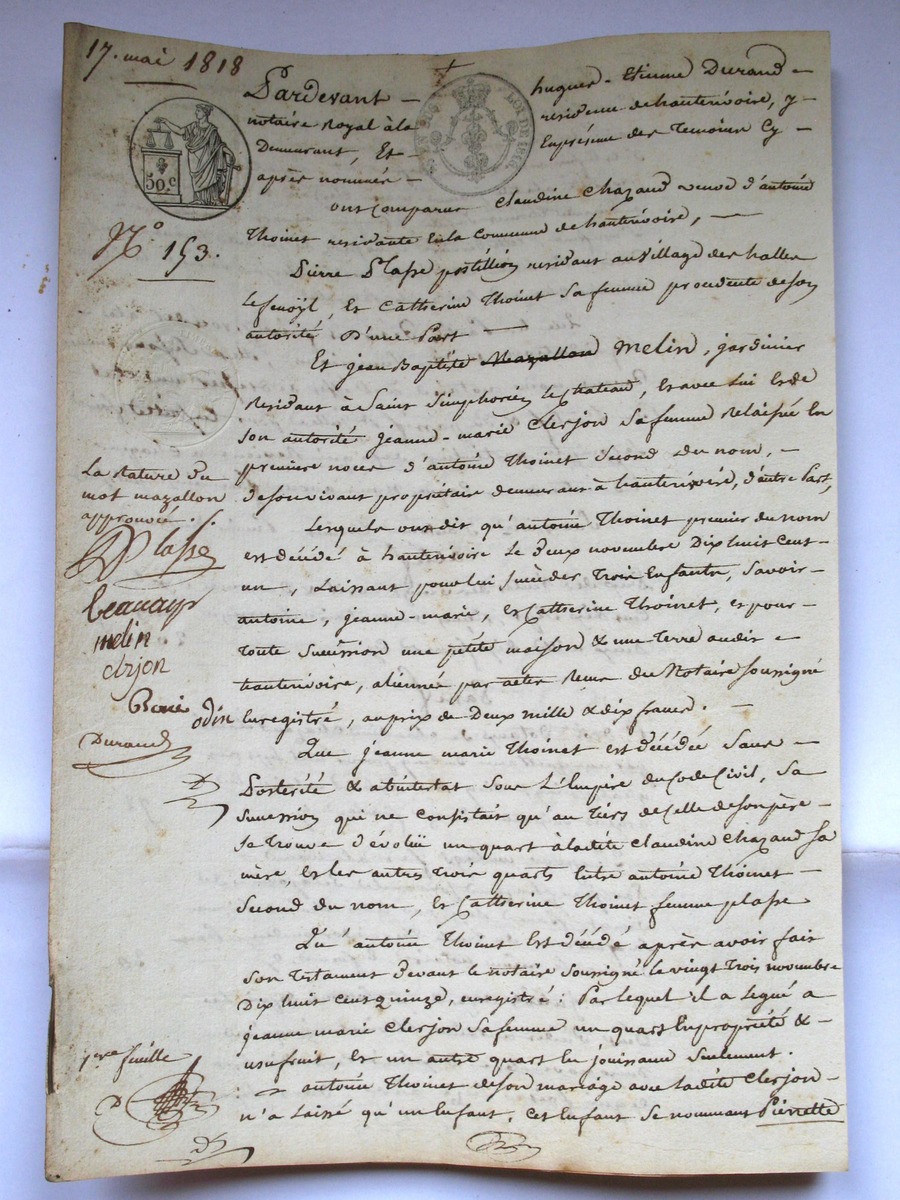 17. mai 1818
Pardevant - hugues - Etienne Durand -
notaire Royal à la résidence de hauterivoire, y
Demeurant, Et - En présence des Temoins Cy -
après nommés -
50.c
LOI DE 1816
ont comparus Claudine Chazaud veuve d'antoine
N.o 153.
Thoinet residante En la Commune de hauterivoire, -
Pierre Plasse postillion residant au Village des halles
le fenoÿl, Et Catherine Thoinet sa femme procedente de son
autorité D'une Part -
Et jean Baptiste Mazallon Melin, jardinier
Residant à Saint Simphorien le Chateau, Et avec lui Et de
son autorité jeanne-marie Clerjon sa femme Relaissée En
premiere noces d'antoine Thoinet Second du nom, -
de son vivant propriétaire demeurant à hauterivoire, d'autre Part,
La rature du
mot mazallon
approuvée ./.
Plasse
beaucays
melin
clrjon
odin
Durand
Lesquels ont dit qu'antoine Thoinet premier du nom
est décédé à hauterivoire le deux novembre Dix huit Cent
un, Laissant pour lui succéder Trois Enfants, Savoir
antoine, jeanne-marie, Et Catherine Thoinet, et pour
Toute succession une petite maison & une Terre audit
hauterivoire, aliennée par actes Reçus du Notaire soussigné
Enregistré, au prix de Deux mille & dix francs. -
Que jeanne marie Thoinet est décédée Sans -
Postérité & abintestat Sous L'Empire du Code Civil, Sa
succession qui ne consistait qu'au Tiers de Celle de son père
se trouve dévolüe un quart à ladite Claudine Chazaud sa
mère, et les autres Trois quarts Entre antoine Thoinet -
Second du nom, Et Catherine Thoinet femme plasse
Qu'antoine Thoinet Est décédé après avoir fait
Son Testament devant le notaire soussigné le vingt Trois novembre
Dix huit Cent quinze, enregistré : Par lequel il a Légué a
jeanne marie Clerjon sa femme un quart En propriété &
usufruit, Et un autre quart En jouissance Seulement.
1ere feuille
antoine Thoinet de son mariage avec ladite Clerjon
n'a Laissé qu'un Enfant, Cet Enfant Se nommant Pierrette